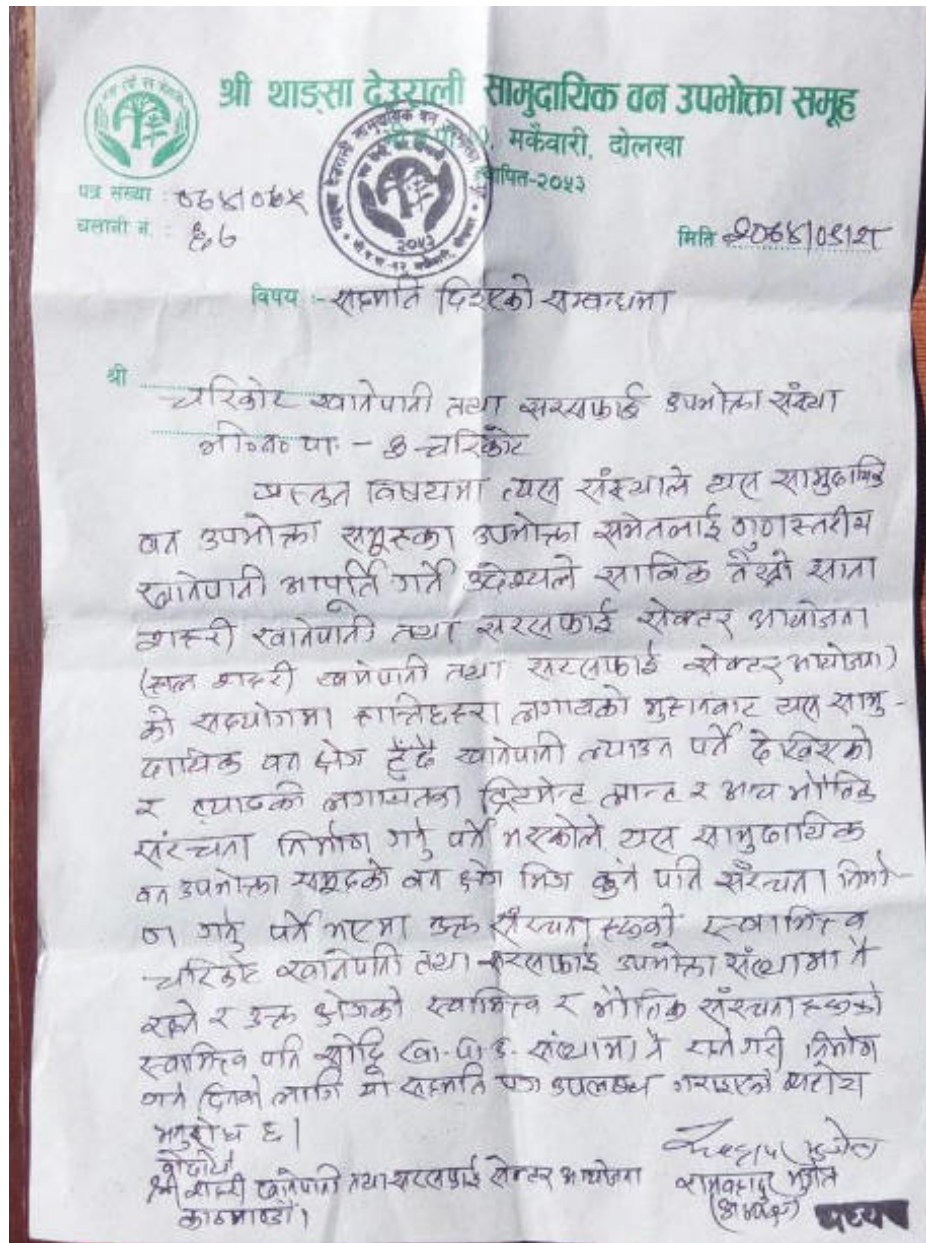 श्री थाङ्सा देउराली सामुदायिक वन उपभोक्ता समूह
मकैवारी, दोलखा
स्थापित-२०५३
पत्र संख्या : ०७४/०७५
चलानी नं. : ६७
मिति २०७४/
विषय :- सहमति दिईएको सम्बन्धमा
श्री
चरिकोट खानेपानी तथा सरसफाई उपभोक्ता संस्था
भी०न०पा० - ३ चरिकोट
प्रस्तुत विषयमा त्यस संस्थाले यस सामुदायिक
वन उपभोक्ता समूहका उपभोक्ता समेतलाई गुणस्तरीय
खानेपानी आपूर्ति गर्ने उद्देश्यले साविक तेस्रो साना
शहरी खानेपानी तथा सरसफाई सेक्टर आयोजना
(हाल शहरी खानेपानी तथा सरसफाई सेक्टर आयोजना)
को सहयोगमा लगायतको मुहानबाट यस सामु-
दायिक वन क्षेत्र हुँदै खानेपानी ल्याउन पर्ने देखिएको
र ट्याङ्की लगायतका ट्रिटमेन्ट प्लान्ट र अन्य भौतिक
संरचना निर्माण गर्नु पर्ने भएकोले यस सामुदायिक
वन उपभोक्ता समूहको वन क्षेत्र भित्र कुनै पनि संरचना निर्मा-
ण गर्नु पर्ने भएमा उक्त संरचनाहरुको स्वामित्व
चरिकोट खानेपानी तथा सरसफाई उपभोक्ता संस्थामा नै
रहने र उक्त क्षेत्रको स्वामित्व र भौतिक संरचनाहरुको
स्वामित्व पनि सोहि खा.पा.उ. संस्थामा नै रहनेगरी निर्माण
गर्न दिनको लागि यो सहमति पत्र उपलब्ध गराइएको व्यहोरा
अनुरोध छ।
बोधार्थ
श्री शहरी खानेपानी तथा सरसफाई सेक्टर आयोजना
काठमाण्डौं।
रामबहादुर
(अध्यक्ष)
अध्यक्ष